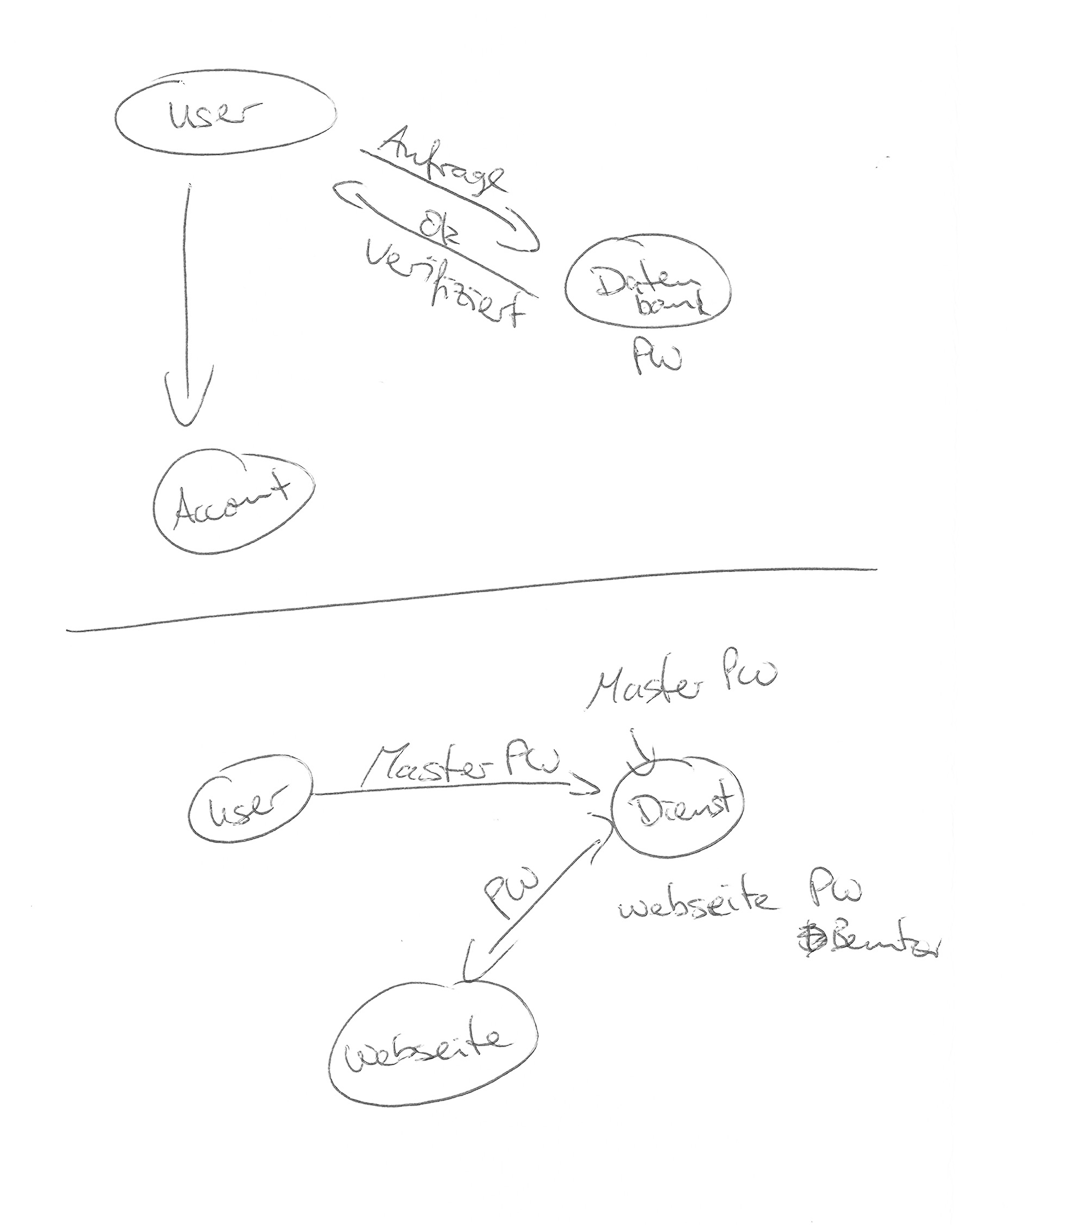 User
Anfrage
Ok
Verifiziert
Daten
bank
PW
Account
Master PW
Master PW
User
Dienst
PW
webseite PW
Benutzer
Webseite